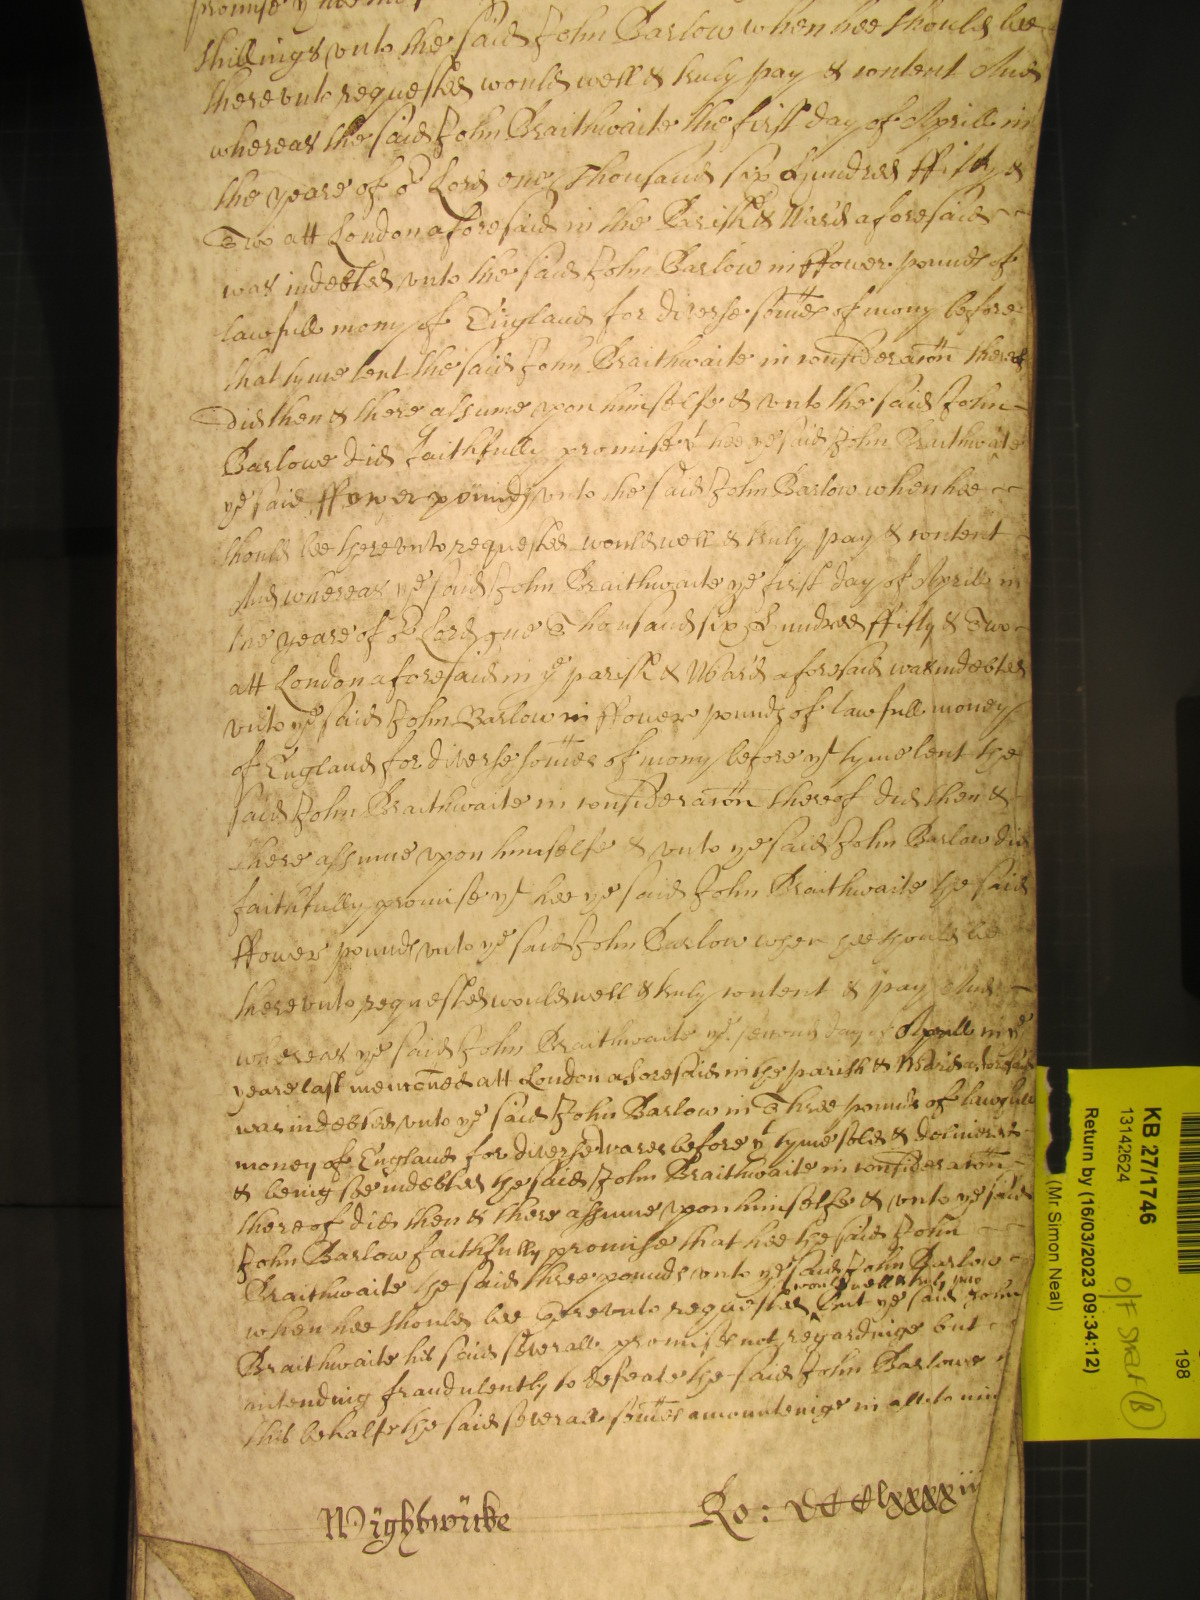 promise y hee
shillings vnto the said John Barlow when hee should bee
therevnto requested would well & truly pay & content And
whereas the said John Braithwaite the first day of Aprill in
the yeare of or Lord one Thousand six Hundred ffifty &
Two att London aforesaid in the Parish & Ward aforesaid
was indebted vnto the said John Barlow in ffower pounds of
lawfull mony of England for diverse somes of mony before
that tyme lent the said John Braithwaite in consideracon thereof
did then & there assume vpon himselfe & vnto the said John
Barlowe did faithfully promise yt hee ye said John Braithwaite
ye said ffower pounds vnto the said John Barlow when hee
should bee therevnto requested would well & truly pay & content
And whereas ye said John Braithwaite ye first day of Aprill in
the yeare of or Lord one Thousand six Hundred ffifty & Two
att London aforesaid in ye parish & Ward aforesaid was indebted
vnto ye said John Barlow in ffower pounds of lawfull money
of England for diverse somes of mony before yt tyme lent the
said John Braithwaite in consideracon thereof did then &
there assume vpon himselfe & vnto ye said John Barlow did
faithfully promise yt hee ye said John Braithwaite the said
ffower pounds vnto ye said John Barlow when hee should bee
therevnto requested would well & truly content & pay And
whereas ye said John Braithwaite ye second day of Aprill in ye
yeare last menconed att London aforesaid in the parish & Ward aforesaid
was indebted vnto ye said John Barlow in Three pounds of lawfull
money of England for diverse wares before yt tyme sold & delivered
& being soe indebted the said John Braithwaite in consideracon
thereof did then & there assume vpon himselfe & vnto ye said
John Barlow faithfully promise that hee the said John
Braithwaite the said three pounds vnto ye said John Barlow
would well & truly pay
when hee should bee therevnto requested but ye said John
Braithwaite his said severall promises not regardinge but
intending fraudulently to defeate the said John Barlowe
this behalfe the said severall somes amounteinge in all to nin
Wightwicke
Ro: DCClxxxxiii
KB 27/1746
13142624
198
Return by (16/03/2023 09:34:12)
(Mr Simon Neal)
O/F Stret B